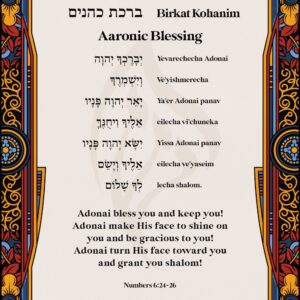 ברכת כהנים Birkat Kohanim
Aaronic Blessing
יְבָרֶכְךָ יְהוָה Yevarechecha Adonai
וְיִשְׁמְרֶךָ Ve'yishmerecha
יָאֵר יְהוָה פָּנָיו Ya'er Adonai panav
אֵלֶיךָ וִיחֻנֶּךָּ eilecha vi'chuneka
יִשָּׂא יְהוָה פָּנָיו Yissa Adonai panav
אֵלֶיךָ וְיָשֵׂם eilecha ve'yaseim
לְךָ שָׁלוֹם lecha shalom.
Adonai bless you and keep you!
Adonai make His face to shine on
you and be gracious to you!
Adonai turn His face toward you
and grant you shalom!
Numbers 6:24-26